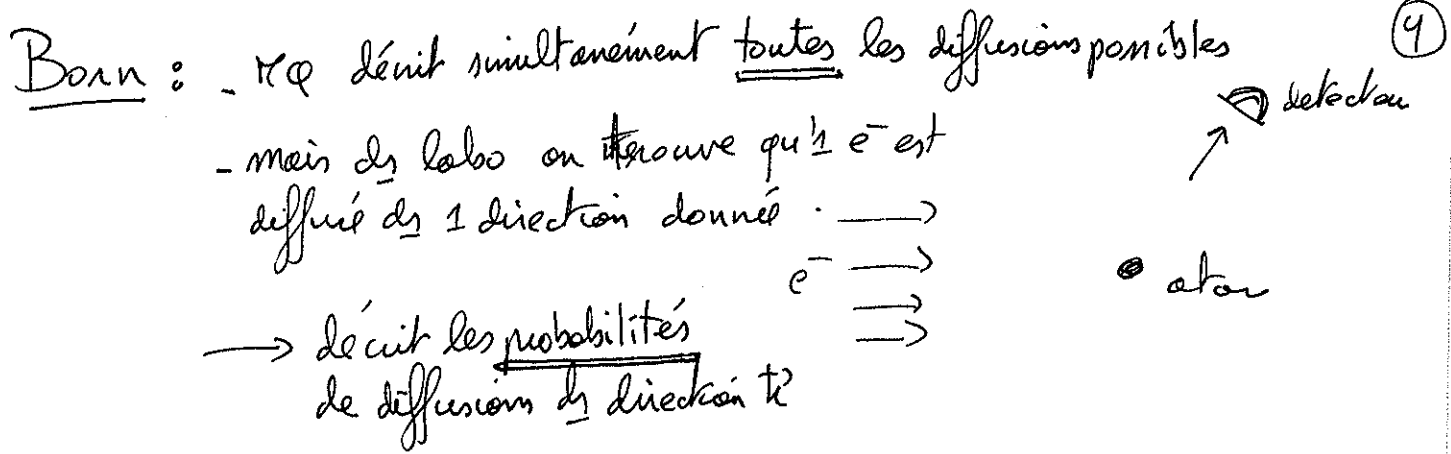 Born : - MQ décrit simultanément toutes les diffusions possibles
9
detecteur
- mais ds labo on trouve qu'1 e⁻ est
diffusé ds 1 direction donnée.
e⁻
atome
→ décrit les probabilités
de diffusion ds direction